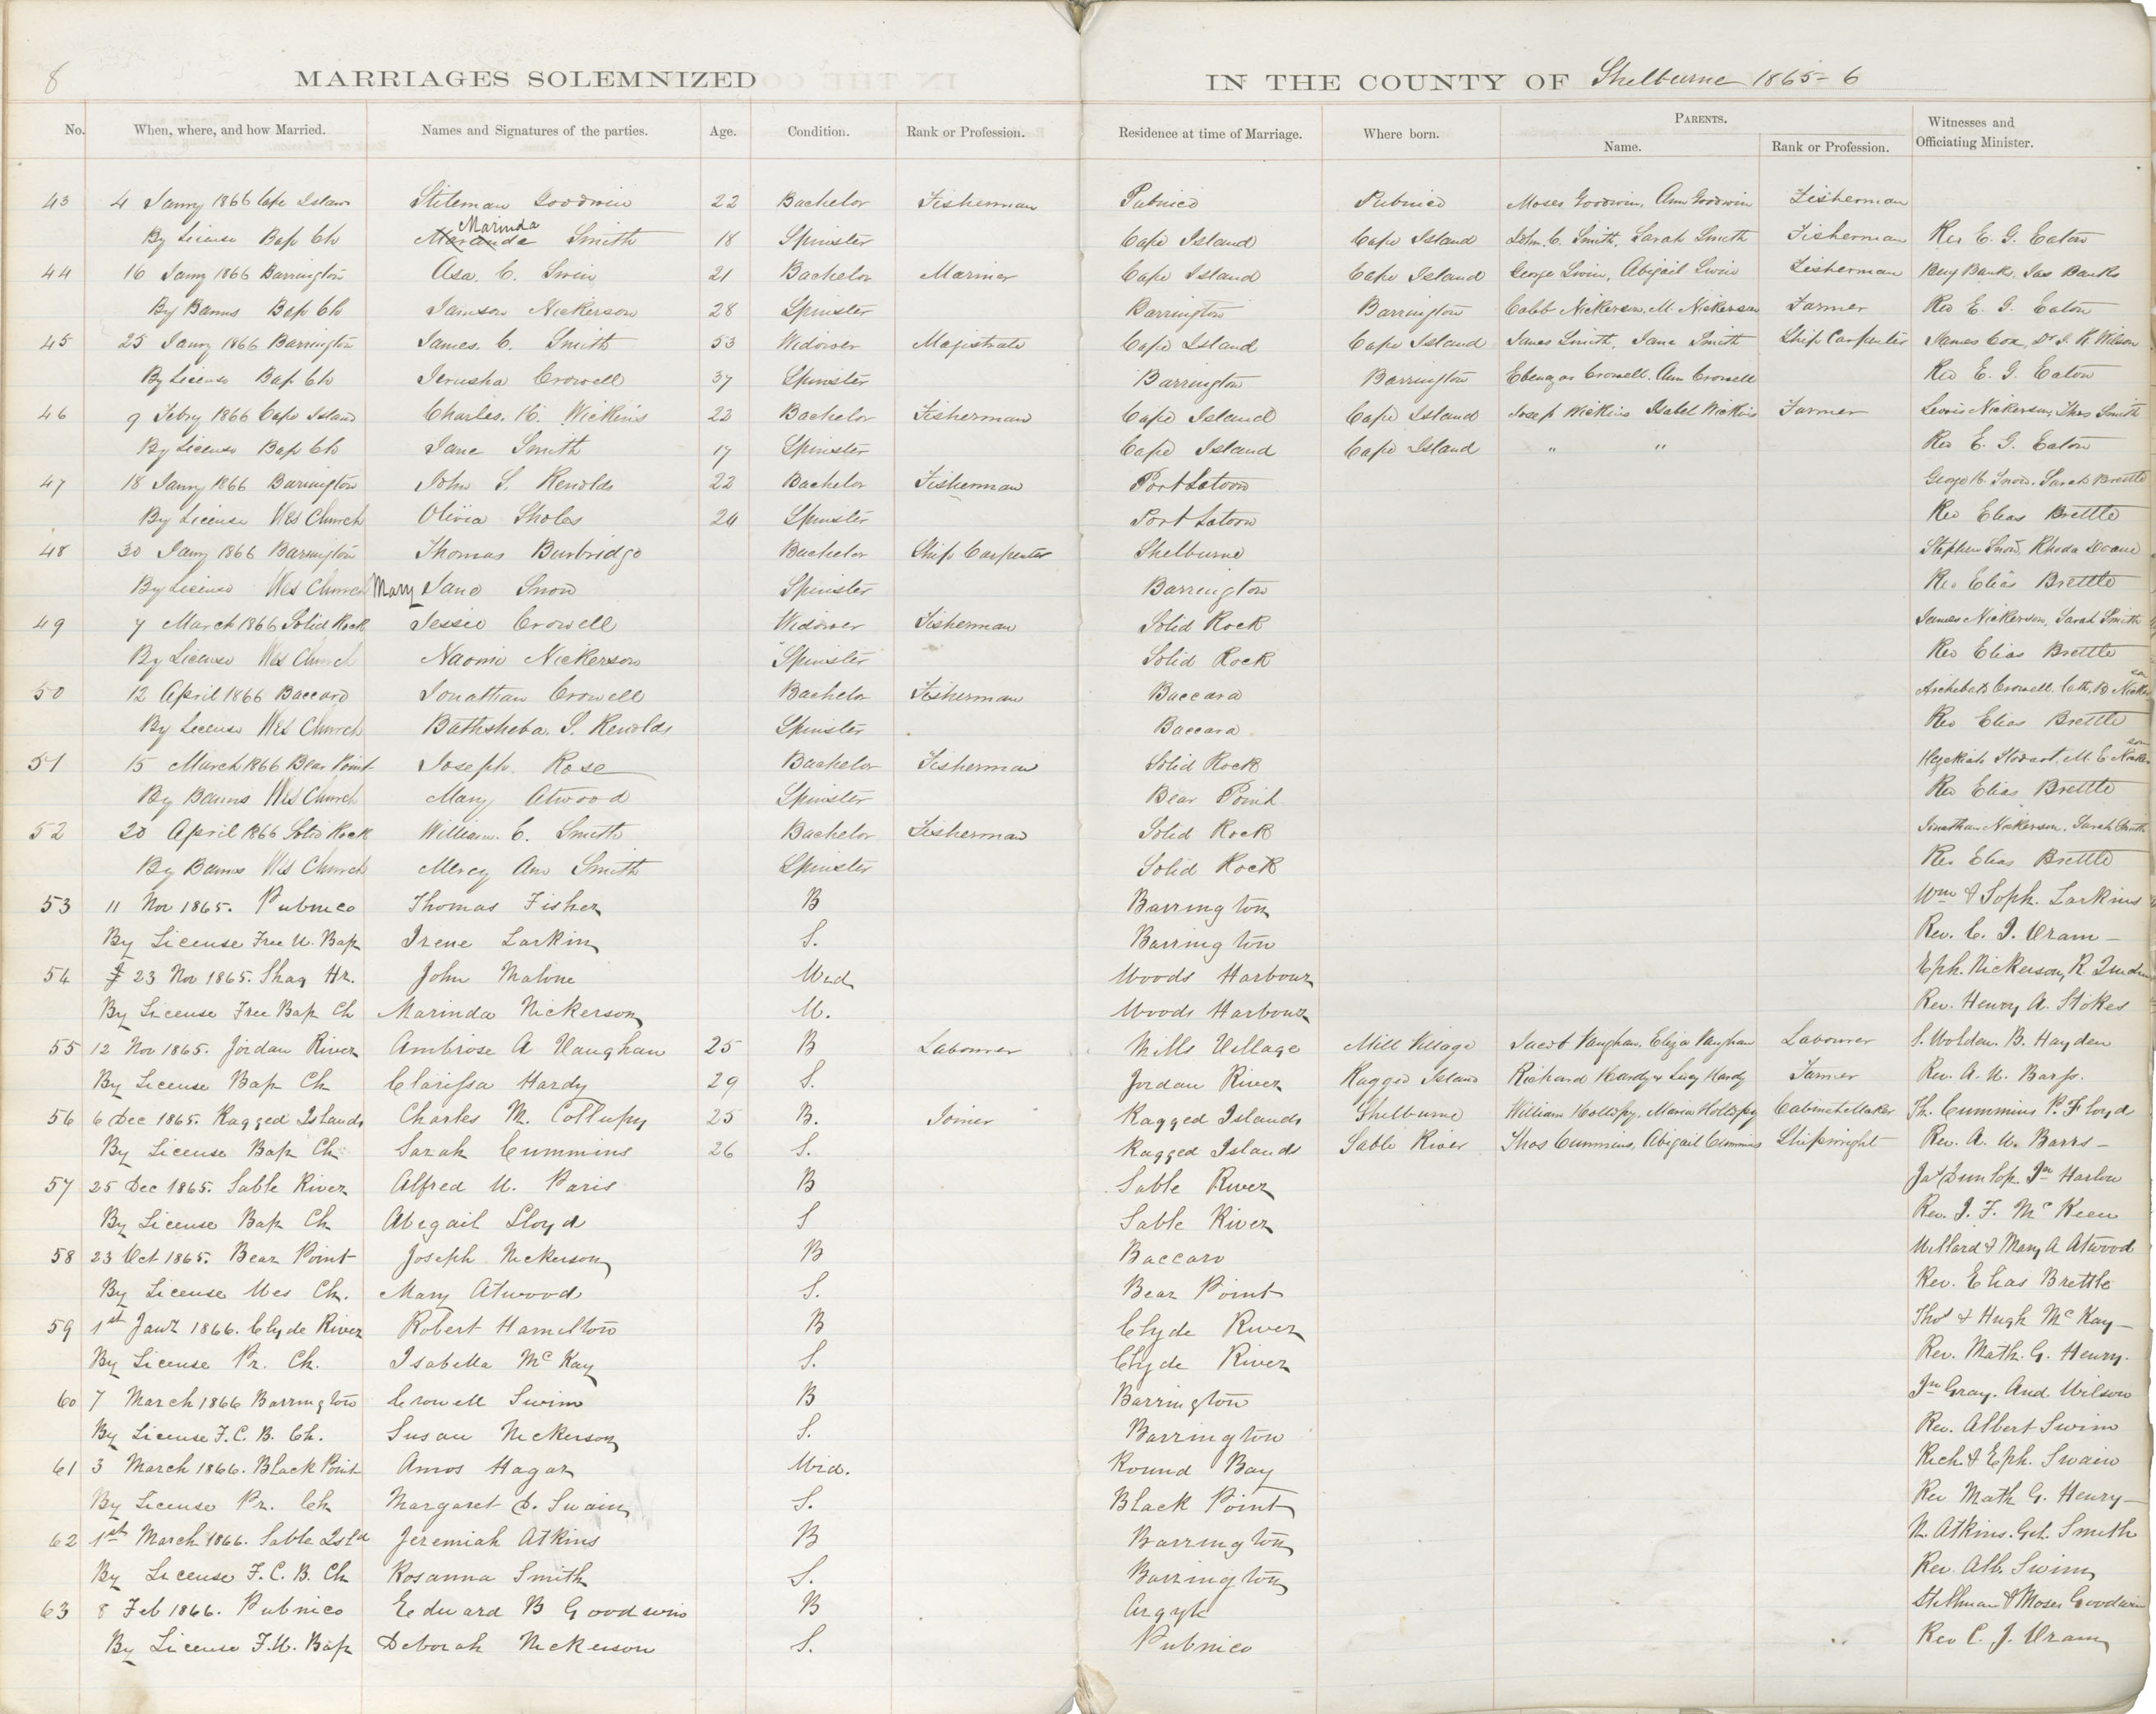 8
MARRIAGES SOLEMNIZED IN THE COUNTY OF Shelburne 1865-6
No. When, where, and how Married. Names and Signatures of the parties. Age. Condition. Rank or Profession. Residence at time of Marriage. Where born. PARENTS. Name. Rank or Profession. Witnesses and Officiating Minister.
43 4 Janry 1866 Cape Island Stileman Goodwin 22 Bachelor Fisherman Pubnico Pubnico Moses Goodwin, Ann Goodwin Fisherman
Marinda
By License Bap Ch Smith 18 Spinster Cape Island Cape Island John C. Smith, Sarah Smith Fisherman Rev E. G. Eaton
44 16 Janry 1866 Barrington Asa. C. Swim 21 Bachelor Mariner Cape Island Cape Island George Swim, Abigail Swim Fisherman Benj Banks, Jas Banks
By Banns Bap Ch Nickerson 28 Spinster Barrington Barrington Caleb Nickerson, M. Nickerson Farmer Rev E. G. Eaton
45 25 Janry 1866 Barrington James. C. Smith 53 Widower Magistrate Cape Island Cape Island James Smith, Jane Smith Ship Carpenter James Cox, Dr I. K. Wilson
By License Bap Ch Jerusha Crowell 37 Spinster Barrington Barrington Ebenezar Crowell. Ann Crowell Rev E. G. Eaton
46 9 Febry 1866 Cape Island Charles. H. Wickins 22 Bachelor Fisherman Cape Island Cape Island Joseph Wickins Isabel Wickins Farmer Lewis Nickerson, Thos Smith
By License Bap Ch Jane Smith 17 Spinster Cape Island Cape Island " " Rev E. G. Eaton
47 18 Janry 1866 Barrington John S. Renolds 22 Bachelor Fisherman Port Latoon George H. Snow. Sarah Brettle
By License Wes Church Olivia Sholes 24 Spinster Port Latoon Rev Elias Brettle
48 30 Janry 1866 Barrington Thomas Burbridge Bachelor Ship Carpenter Shelburne Stephen Snow, Rhoda Doane
By License Wes Church Mary Jane Snow Spinster Barrington Rev Elias Brettle
49 7 March 1866 Solid Rock Jessie Crowell Widower Fisherman Solid Rock James Nickerson, Sarah Smith
By License Wes Church Naomi Nickerson Spinster Solid Rock Rev Elias Brettle
50 12 April 1866 Baccaro Jonathan Crowell Bachelor Fisherman Baccara Archibald Crowell. Cath, B Nickerson
By License Wes Church Bathsheba. S. Renolds Spinster Baccara Rev Elias Brettle
51 15 March 1866 Bear Point Joseph Rose Bachelor Fisherman Solid Rock Hezekiah Stodart, M. E Nickerson
By Banns Wes Church Mary Atwood Spinster Bear Point Rev Elias Brettle
52 20 April 1866 Solid Rock William. C. Smith Bachelor Fisherman Solid Rock Jonathan Nickerson. Sarah Smith
By Banns Wes Church Mercy Ann Smith Spinster Solid Rock Rev Elias Brettle
53 11 Nov 1865. Pubnico Thomas Fisher B Barrington Wm & Soph. Larkins
By License Free W. Bap Irene Larkin S. Barrington Rev. C. J. Oram
54 23 Nov 1865. Shag Hr. John Malone Wid Woods Harbour Eph. Nickerson, R
By License Free Bap Ch Marinda Nickerson W. Woods Harbour Rev. Henry A. Stokes
55 12 Nov 1865. Jordan River Ambrose A Vaughan 25 B Labourer Mills Village Mill Village Jacob Vaughan, Eliza Vaughan Labourer S. Wolden. B. Hayden
By License Bap Ch Clarissa Hardy 29 S. Jordan River Ragged Island Richard Hardy & Lucy Hardy Farmer Rev. A. W. Barss.
56 6 Dec 1865. Ragged Islands Charles M. Collupy 25 B. Joiner Ragged Islands Shelburne William Hollopy, Maria Hollopy Cabinet Maker Th. Cummins P. Floyd
By License Bap Ch Sarah Cummins 26 S. Ragged Islands Sable River Thos Cummins, Abigail Cummins Shipwright Rev. A. W. Barrs
57 25 Dec 1865. Sable River Alfred W. Paris B Sable River Jas Dunlop. Jn Harlow
By License Bap Ch Abigail Lloyd S Sable River Rev. J. F. McKeen
58 23 Oct 1865. Bear Point Joseph Nickerson B Baccaro Willard & Mary A Atwood
By License Wes Ch. Mary Atwood S. Bear Point Rev. Elias Brettle
59 1st Jany 1866. Clyde River Robert Hamilton B Clyde River Thos & Hugh McKay
By License Pr. Ch. Isabella McKay S. Clyde River Rev. Math. G. Henry.
60 7 March 1866 Barrington Crowell Swim B Barrington Jn Gray. And Wilson
By License F.C.B. Ch. Susan Nickerson S. Barrington Rev. Albert Swim
61 3 March 1866. Black Point Amos Hagar Wid. Round Bay Rich. & Eph. Swain
By License Pr. Ch Margaret D. Swain S. Black Point Rev Math G. Henry
62 1st March 1866. Sable Isld Jeremiah Atkins B Barrington N. Atkins. Geh. Smith
By License F.C.B. Ch Rosanna Smith S. Barrington Rev. Alb. Swim
63 8 Feb 1866. Pubnico Edward B Goodwin B Argyle Stillman & Moses Goodwin
By License F.W. Bap Deborah Nickerson S. Pubnico Rev C. J. Oram